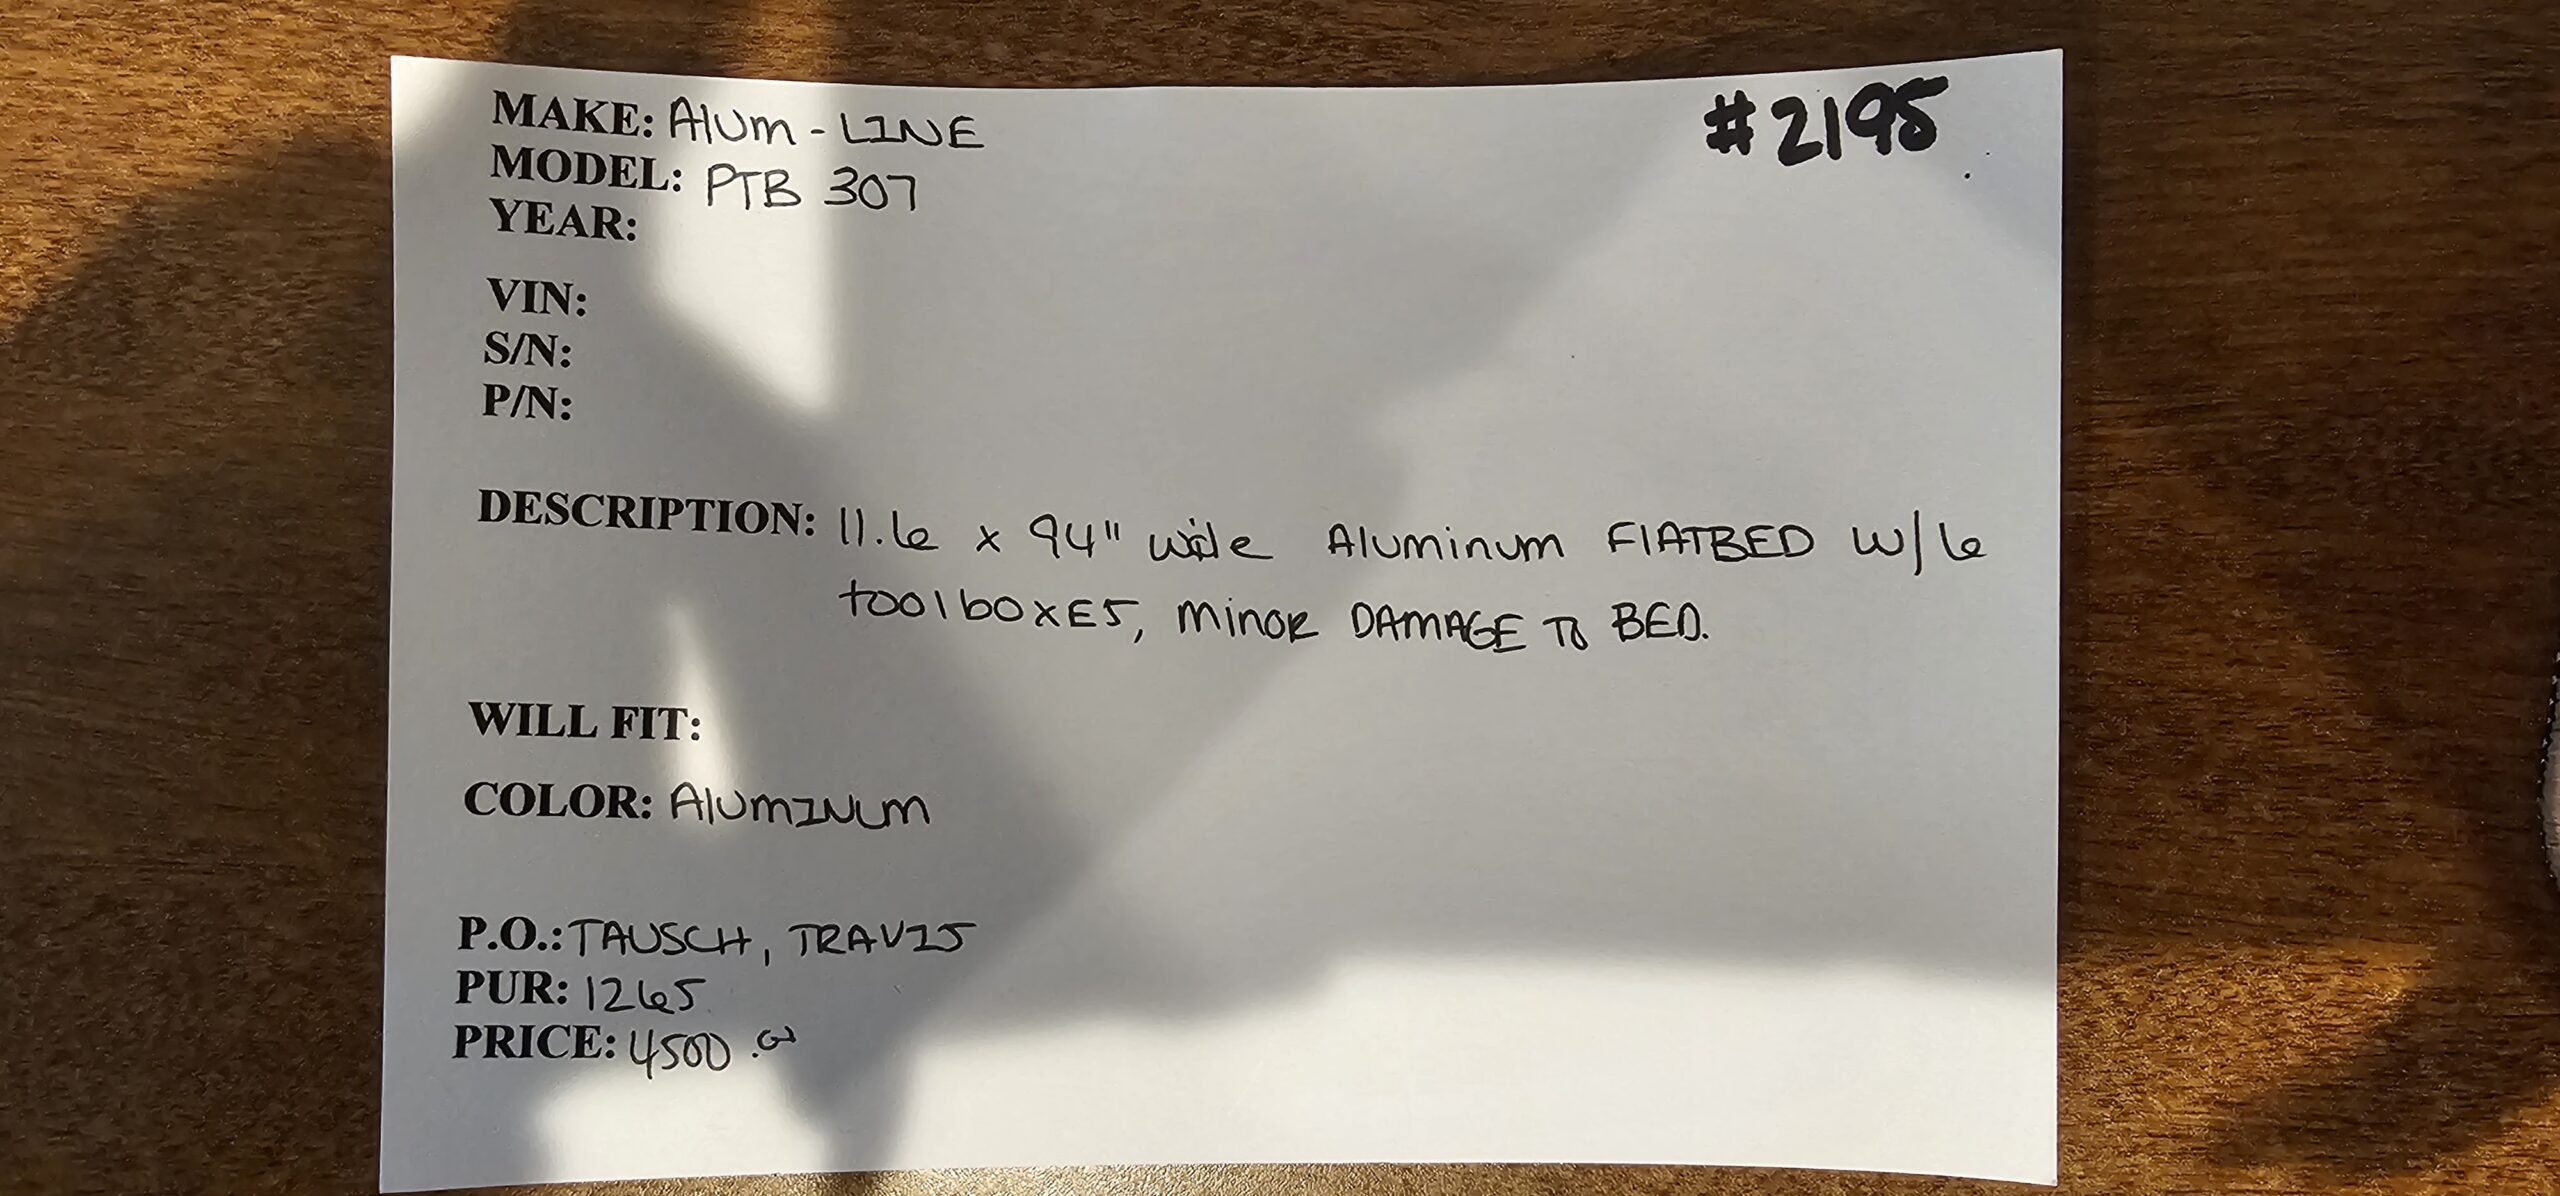 #2195
MAKE: Alum-LINE
MODEL: PTB 307
YEAR:
VIN:
S/N:
P/N:
DESCRIPTION: 11.6 x 94" wide Aluminum FlATBED W/6
toolboxES, Minor DAMAGE TO BED.
WILL FIT:
COLOR: AlumINum
P.O.: TAUSCH, TRAVIS
PUR: 1265
PRICE: 4500.00